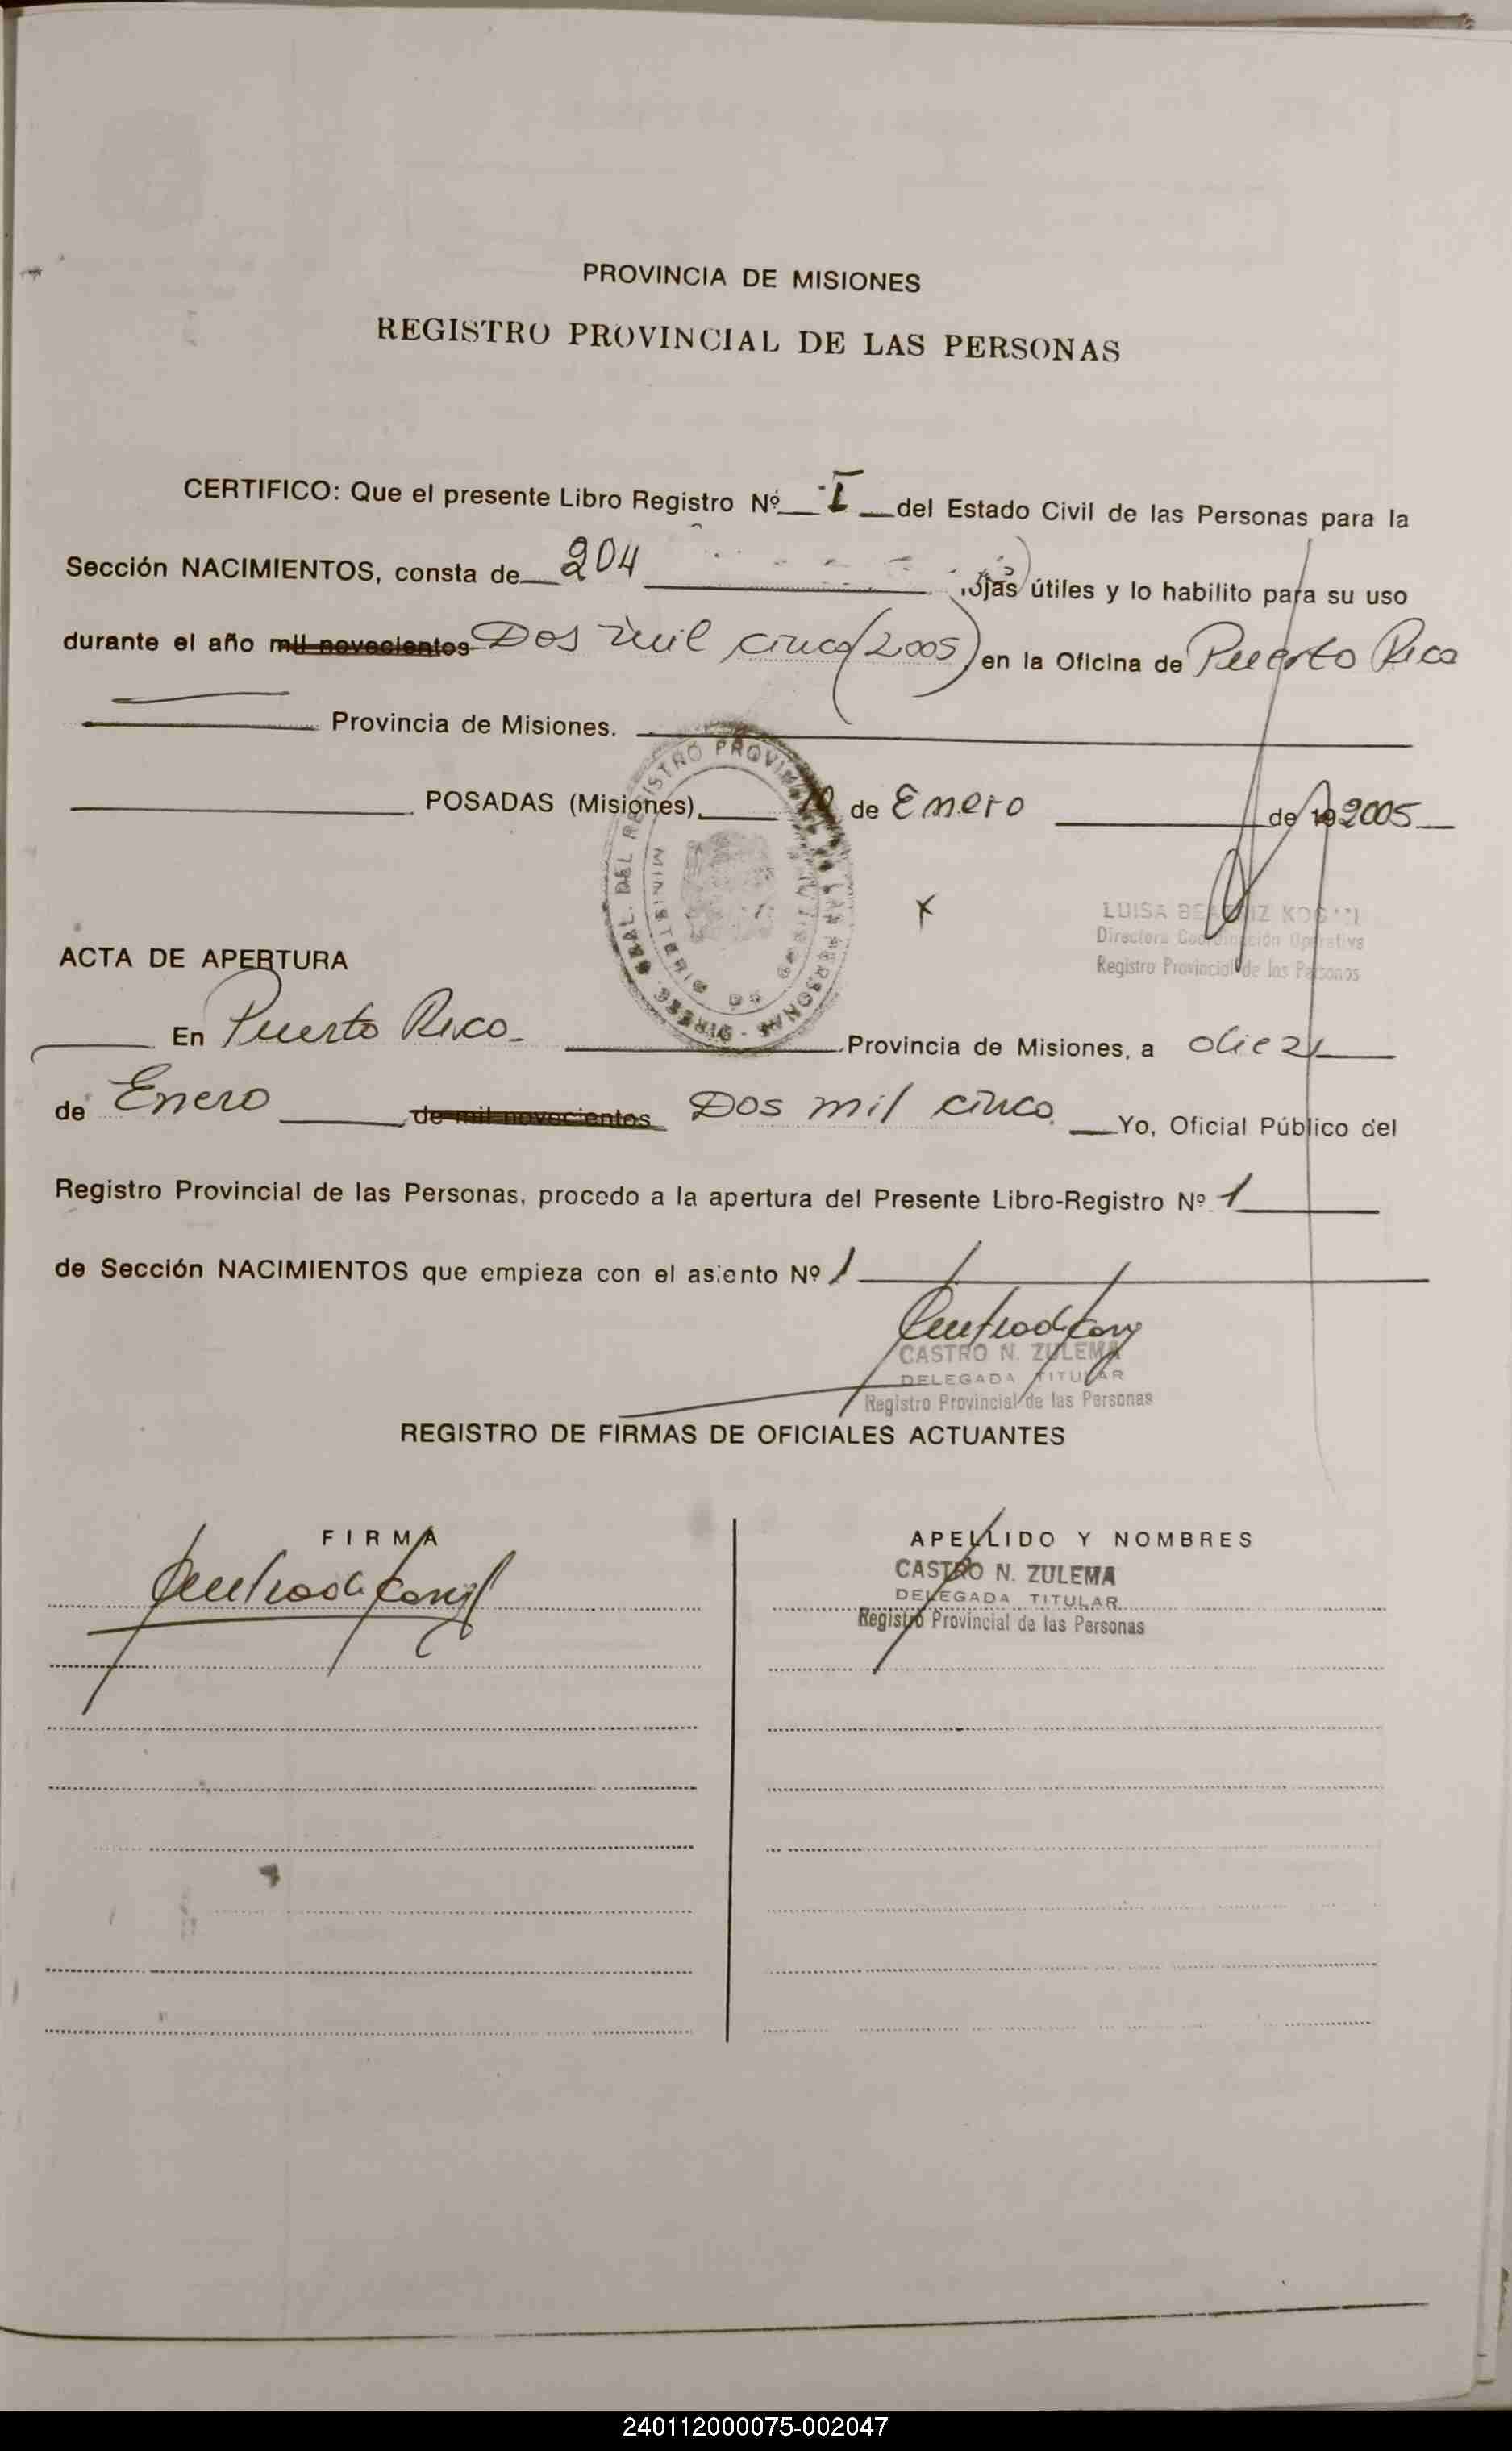 PROVINCIA DE MISIONES
REGISTRO PROVINCIAL DE LAS PERSONAS
CERTIFICO: Que el presente Libro Registro Nº I del Estado Civil de las Personas para la
Sección NACIMIENTOS, consta de 204 ojas útiles y lo habilito para su uso
durante el año mil novecientos Dos mil cinco (2005) en la Oficina de Puerto Rico
Provincia de Misiones.
POSADAS (Misiones), 10 de Enero de 19 2005
LUISA BEATRIZ
Directora Coordinación Operativa
Registro Provincial de las Personas
DIRECC. GRAL. DEL REGISTRO PROVINCIAL DE LAS PERSONAS
MINISTERIO DE GOBIERNO
ACTA DE APERTURA
En Puerto Rico Provincia de Misiones, a diez
de Enero de mil novecientos Dos mil cinco. Yo, Oficial Público del
Registro Provincial de las Personas, procedo a la apertura del Presente Libro-Registro Nº 1
de Sección NACIMIENTOS que empieza con el asiento Nº 1
CASTRO N. ZULEMA
DELEGADA TITULAR
Registro Provincial de las Personas
REGISTRO DE FIRMAS DE OFICIALES ACTUANTES
FIRMA
APELLIDO Y NOMBRES
CASTRO N. ZULEMA
DELEGADA TITULAR
Registro Provincial de las Personas
240112000075-002047